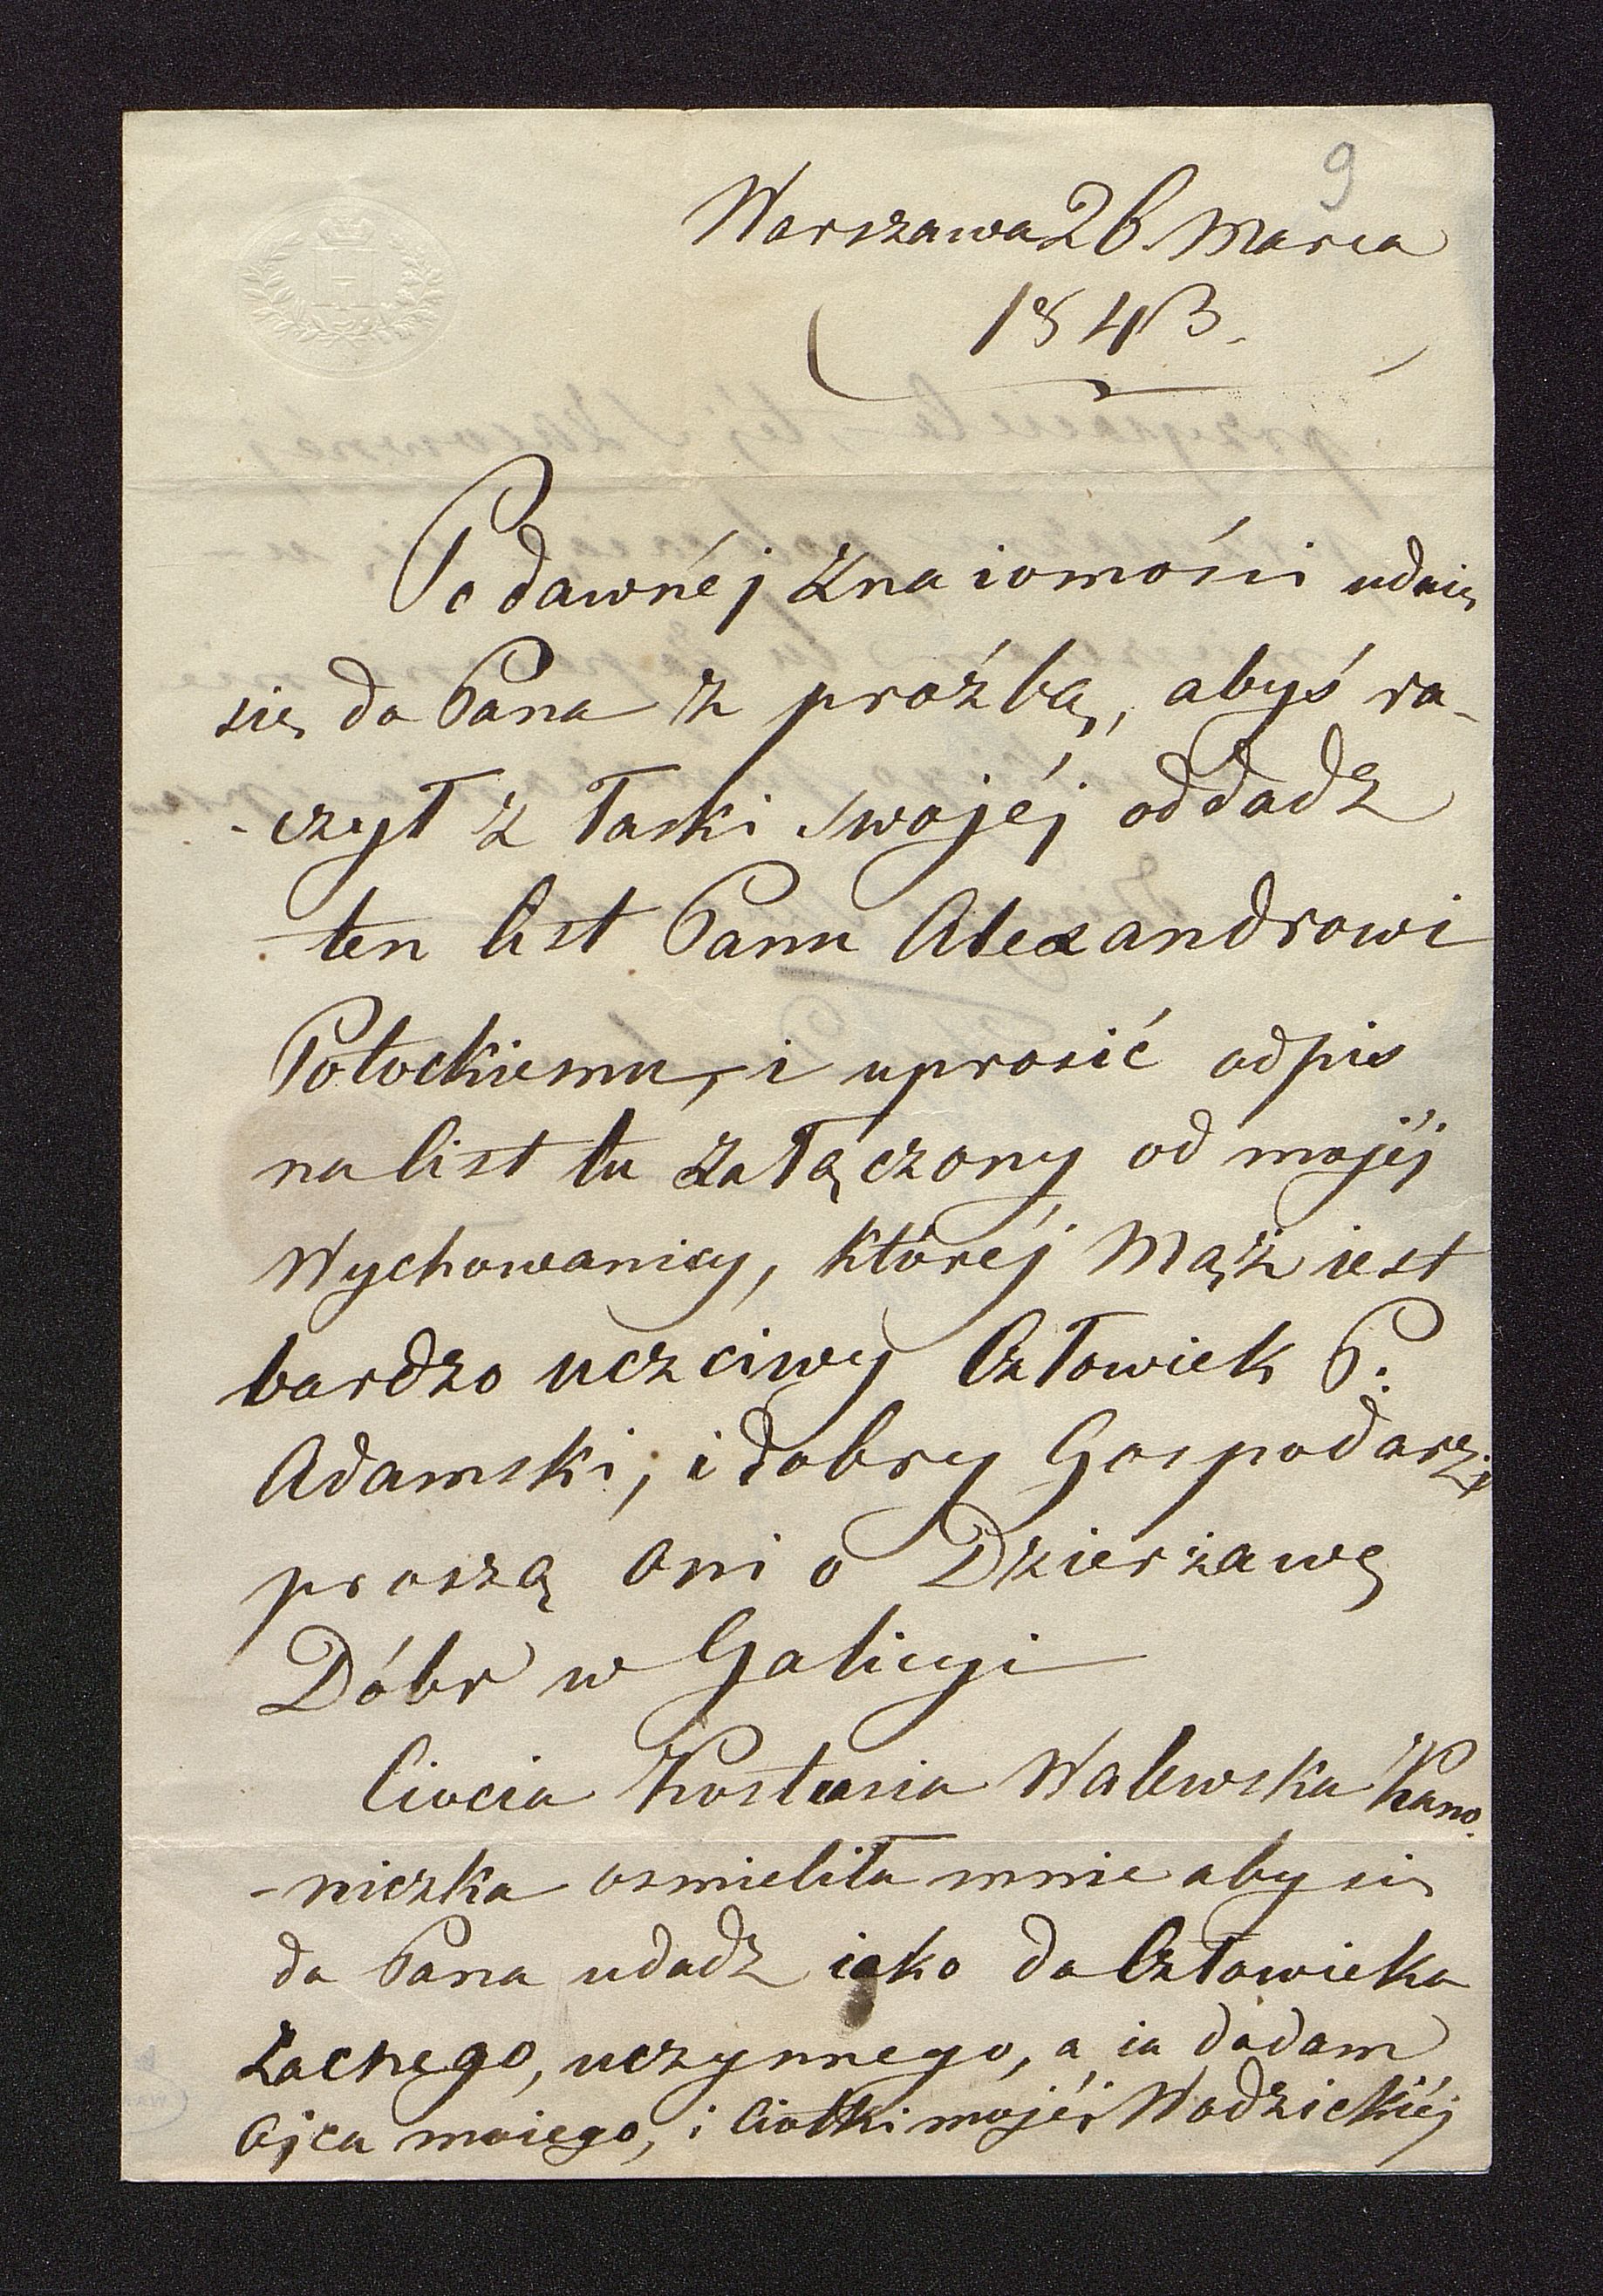 9
Warszawa 26. Marca
1843.
Po dawnéj znaiomości udaię
się do Pana z proźbą, abyś ra-
-czył z łaski swojéj oddadz
ten list Panu Alexandrowi
Potockiemu, i uprosić odpis
na list tu załączony od mojéj
Wychowanicy, któréj Mąż iest
bardzo uczciwy Człowiek P.
Adamski, i dobry Gospodarz,
proszą oni o Dzierżawę
Dóbr w Galicyi
Ciocia Kostusia Walewska Kano-
-niczka osmieliła mnie aby się
do Pana udadz iako do Człowieka
Zacnego, uczynnego, a ia dodam
Ojca moiego, i Ciotki mojéj Wodzickiéj